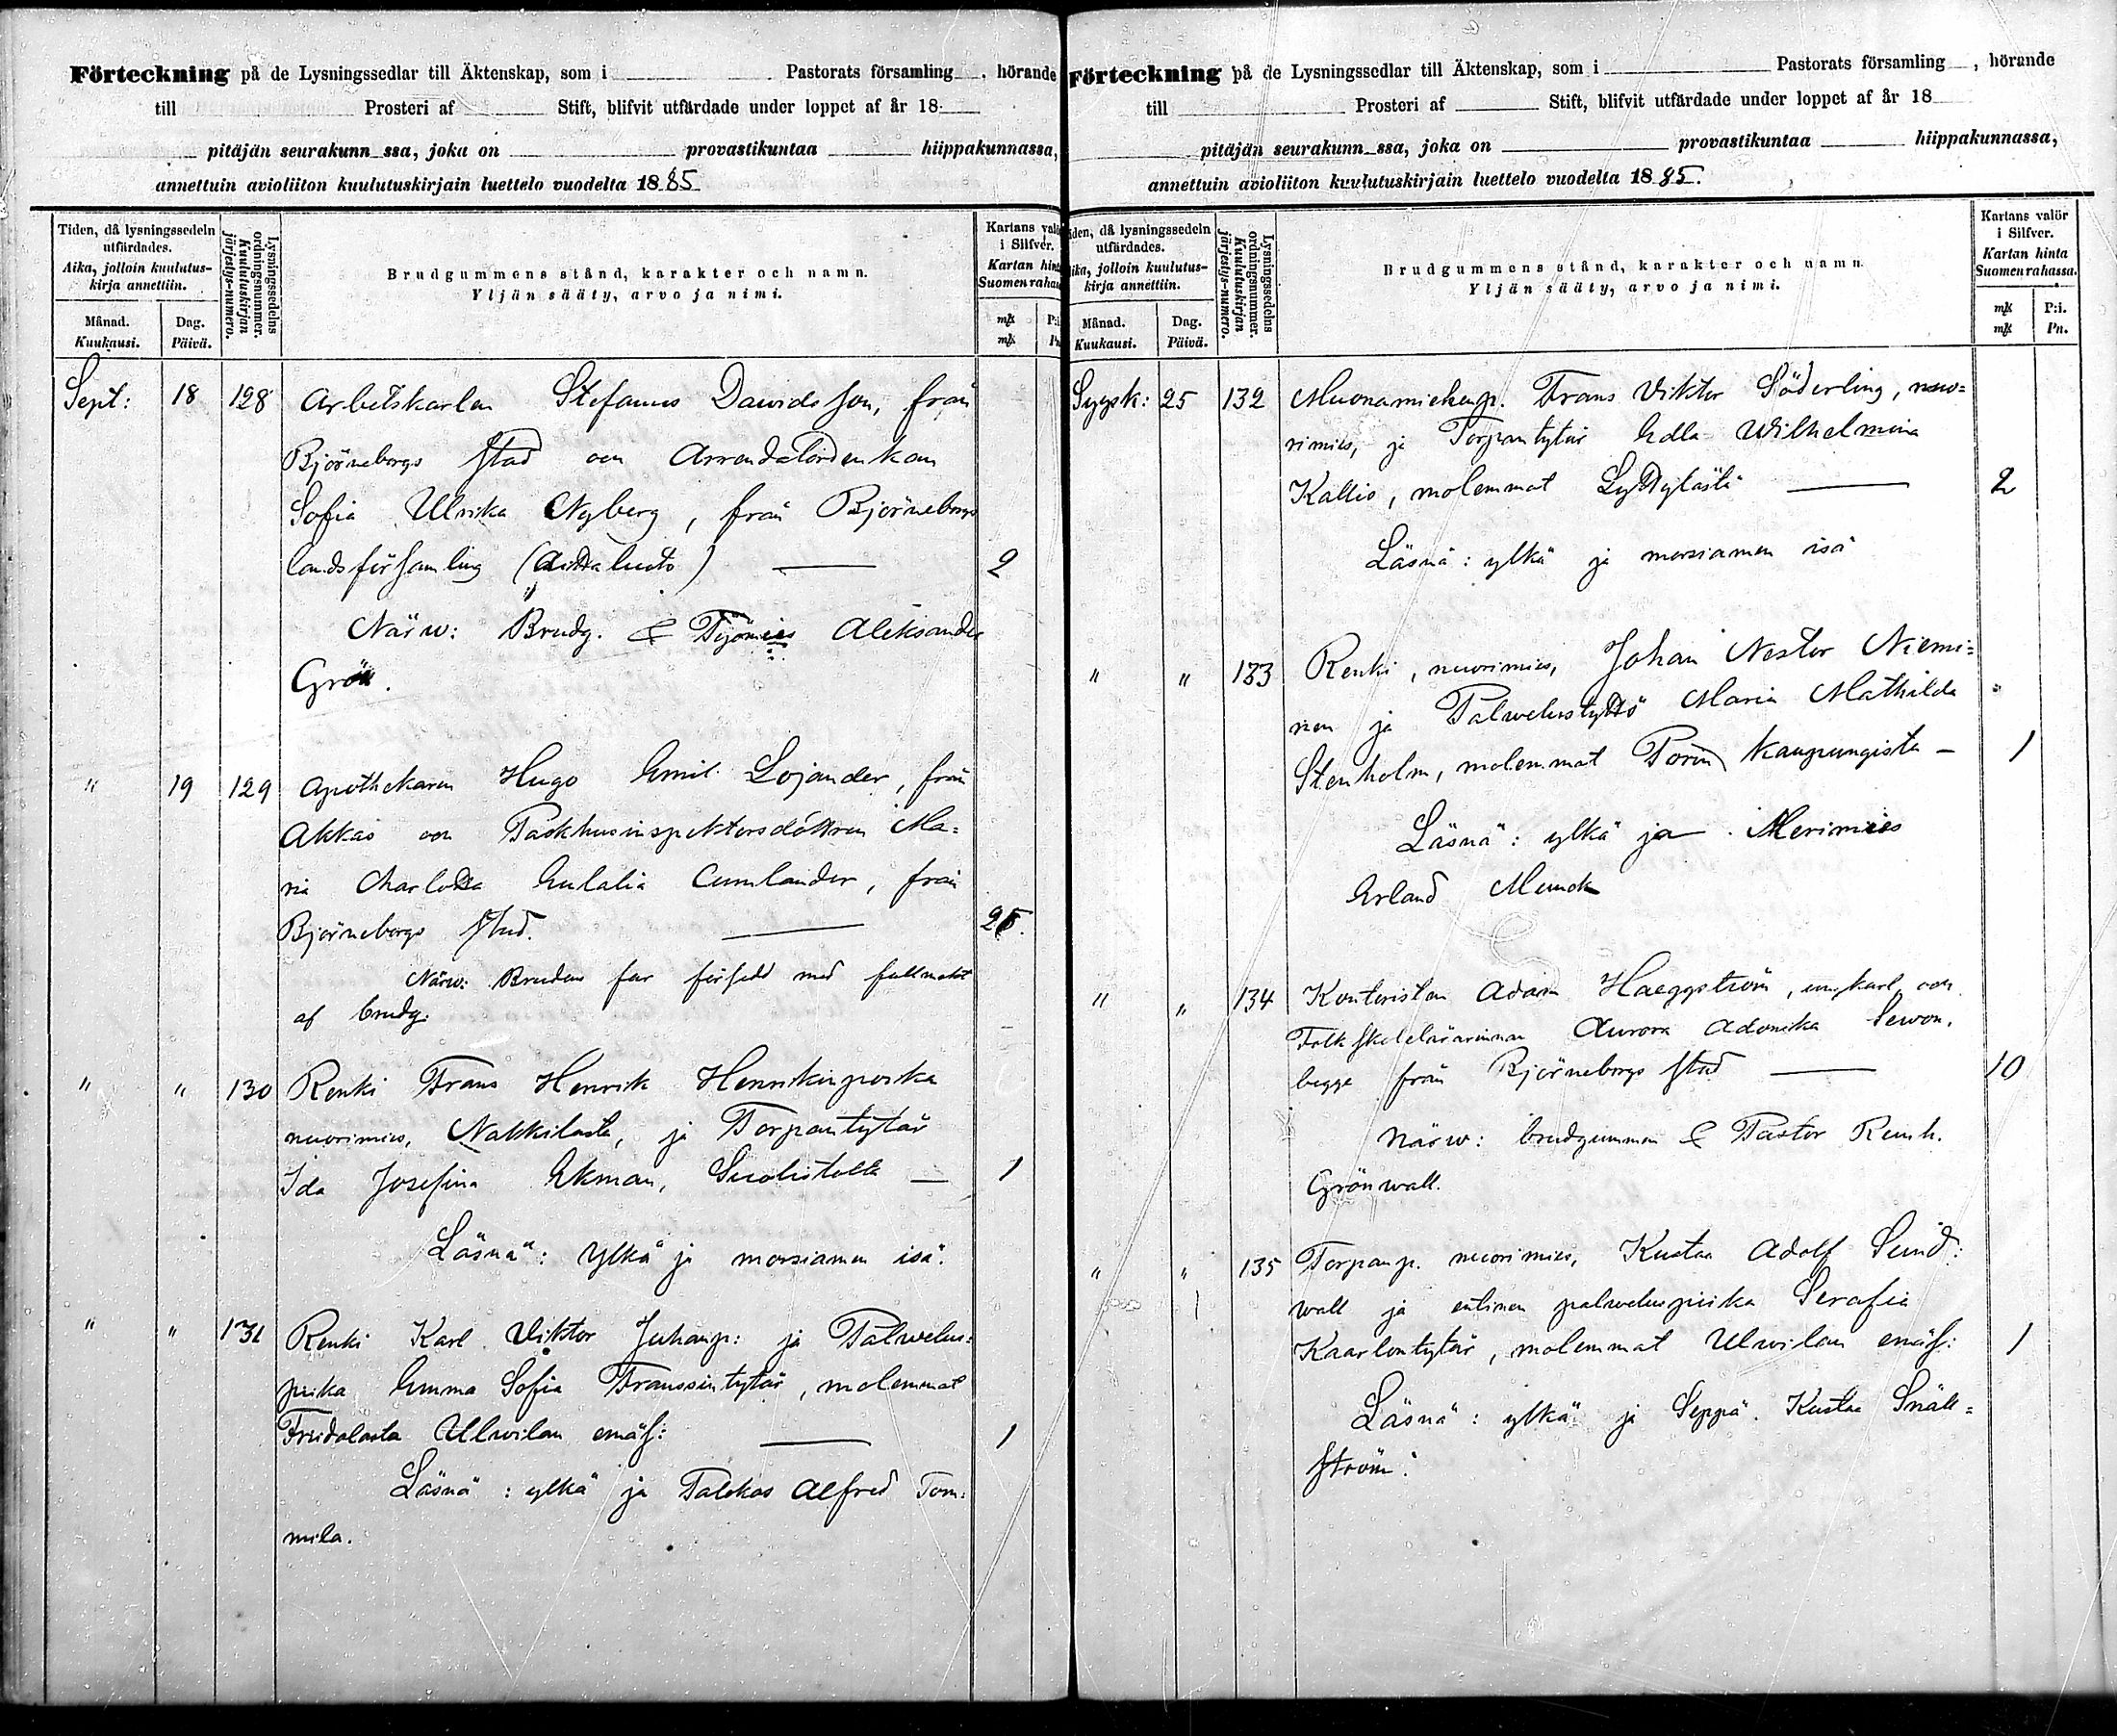 Förteckning på de Lysningssedlar till Äktenskap, som i Pastorats församling, hörande
till Prosteri af Stift, blifvit utfärdade under loppet af år 18
pitäjän seurakunn ssa, joka on provastikuntaa hiippakunnassa,
annettuin avioliiton kuulutuskirjain luettelo vuodelta 1885
Tiden, då lysningssedeln utfärdades.
Aika, jolloin kuulutus-kirja annettiin.
Månad. Kuukausi.
Dag. Päivä.
Lysningssedelns ordningsnummer.
Kuulutuskirjan järjestys-numero.
Brudgummens stånd, karakter och namn.
Yljän sääty, arvo ja nimi.
Kartans valör i Silfver.
Kartan hinta Suomen rahassa
Sept: 18 128 Arbetskarlen Stefanus Davidsson, från
Björneborgs stad och Arrendatorsenkan
Sofia Ulrika Nyberg, från Björneborgs
landsförsamling (Aittaluoto) — 2
Närw: Brudg. & Työmies Aleksander
Grön.
" 19 129 Apothekaren Hugo Emil Lojander, från
Akkas och Packhusinspektorsdottren Ma=
ria Charlotta Eulalia Cumlander, från
Björneborgs stad. — 25.
Närw: Brudens far försedd med fullmakt
af brudg.
" " 130 Renki Frans Henrik Henrikinpoika
nuorimies, Nakkilasta, ja Torpantytär
Ida Josefina Ekman, — 1
Läsnä: ylkä ja morsiamen isä.
" " 131 Renki Karl Viktor Juhanp: ja Palwelus=
piika Emma Sofia Franssintytär, molemmat
Friidalasta Ulwilan emäs: — 1
Läsnä: ylkä ja Talokas Alfred Tom=
mila.
Förteckning på de Lysningssedlar till Äktenskap, som i Pastorats församling, hörande
till Prosteri af Stift, blifvit utfärdade under loppet af år 18
pitäjän seurakunn ssa, joka on provastikuntaa hiippakunnassa,
annettuin avioliiton kuulutuskirjain luettelo vuodelta 1885.
Tiden, då lysningssedeln utfärdades.
Aika, jolloin kuulutus-kirja annettiin.
Månad. Kuukausi.
Dag. Päivä.
Lysningssedelns ordningsnummer.
Kuulutuskirjan järjestys-numero.
Brudgummens stånd, karakter och namn
Yljän sääty, arvo ja nimi.
Kartans valör i Silfver.
Kartan hinta Suomen rahassa.
mk P:i.
mk Pn.
Syysk: 25 132 Muonamiehenp. Frans Viktor Söderling, nuo=
rimies, ja Torpantytär Edla Wilhelmina
Kallio, molemmat Lyttylästä — 2
Läsnä: ylkä ja morsiamen isä
" " 133 Renki, nuorimies, Johan Nestor Niemi=
nen ja Palwelustyttö Maria Mathilda
Stenholm, molemmat Porin kaupungista — 1
Läsnä: ylkä ja Merimies
Erland Munck
" " 134 Kontoristen Adam Haeggström, ungkarl, och
Folkskolelärarinnan Aurora Adonika Sewon,
begge från Björneborgs stad — 10
Närw: brudgummen & Pastor Reinh.
Grönwall.
" " 135 Torpanp. nuorimies, Kustaa Adolf Sund=
wall ja entinen palweluspiika Serafia
Kaarlontytär, molemmat Ulwilan emäs: 1
Läsnä: ylkä ja Seppä Kustaa Snäll=
ström.